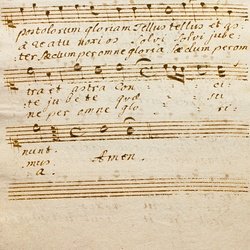 postolorum gloriam Tellus tellus et as,,
a reatu noxios Solvi Solvi jube
ter Sæclum per omne gloria sæclum per om
tra et astra con ci
te jubete quæ si
ne per omne glo ri
nunt.
mus.
a. Amen.